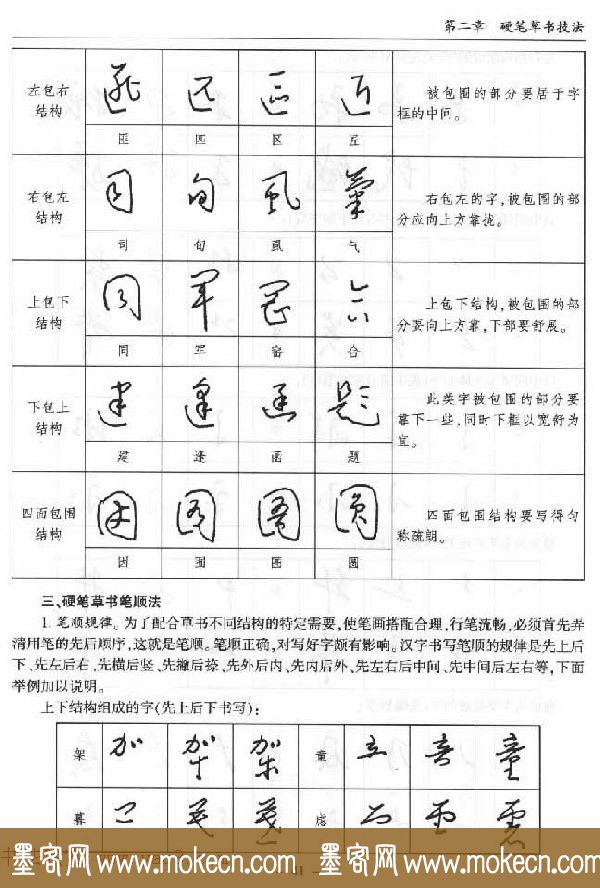 第二章 硬笔草书技法
左包右
结构
匪 匹 区 巨
被包围的部分要居于字
框的中间。
右包左
结构
司 旬 虱 气
右包左的字,被包围的部
分应向上方靠拢。
上包下
结构
同 军 合
上包下结构,被包围的部
分要向上方靠,下部要舒展。
下包上
结构
建 逢 函 题
此类字被包围的部分要
靠下一些,同时下框以宽舒为
宜。
四面包围
结构
因 图 圆
四面包围结构要写得匀
称疏朗。
三、硬笔草书笔顺法
1. 笔顺规律。为了配合草书不同结构的特定需要,使笔画搭配合理,行笔流畅,必须首先弄
清用笔的先后顺序,这就是笔顺。笔顺正确,对写好字颇有影响。汉字书写笔顺的规律是先上后
下、先左后右、先横后竖、先撇后捺、先外后内、先内后外、先左右后中间、先中间后左右等,下面
举例加以说明。
上下结构组成的字(先上后下书写):
架 童
虑
墨客网 www.mokecn.com 墨客网 www.mokecn.com